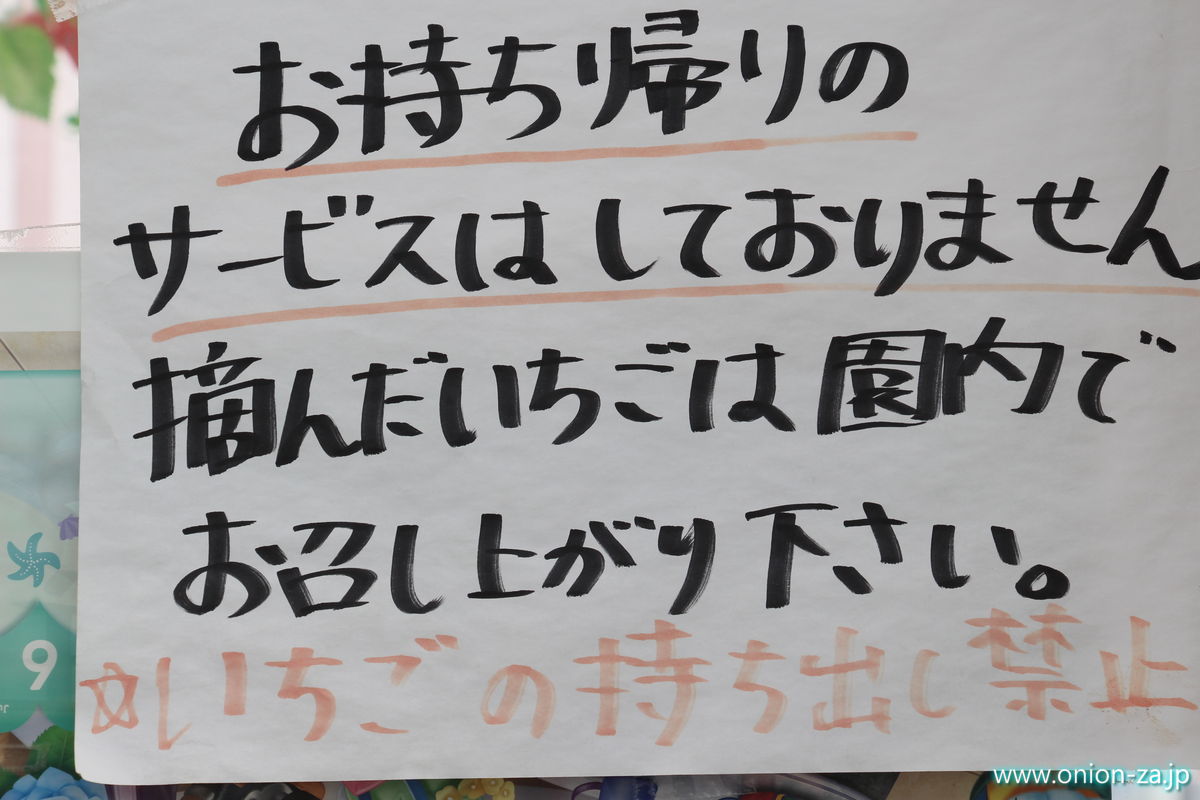 お持ち帰りの
サービスはしておりません
摘んだいちごは園内で
お召し上がり下さい。
☆いちごの持ち出し禁止
9
www.onion-za.jp